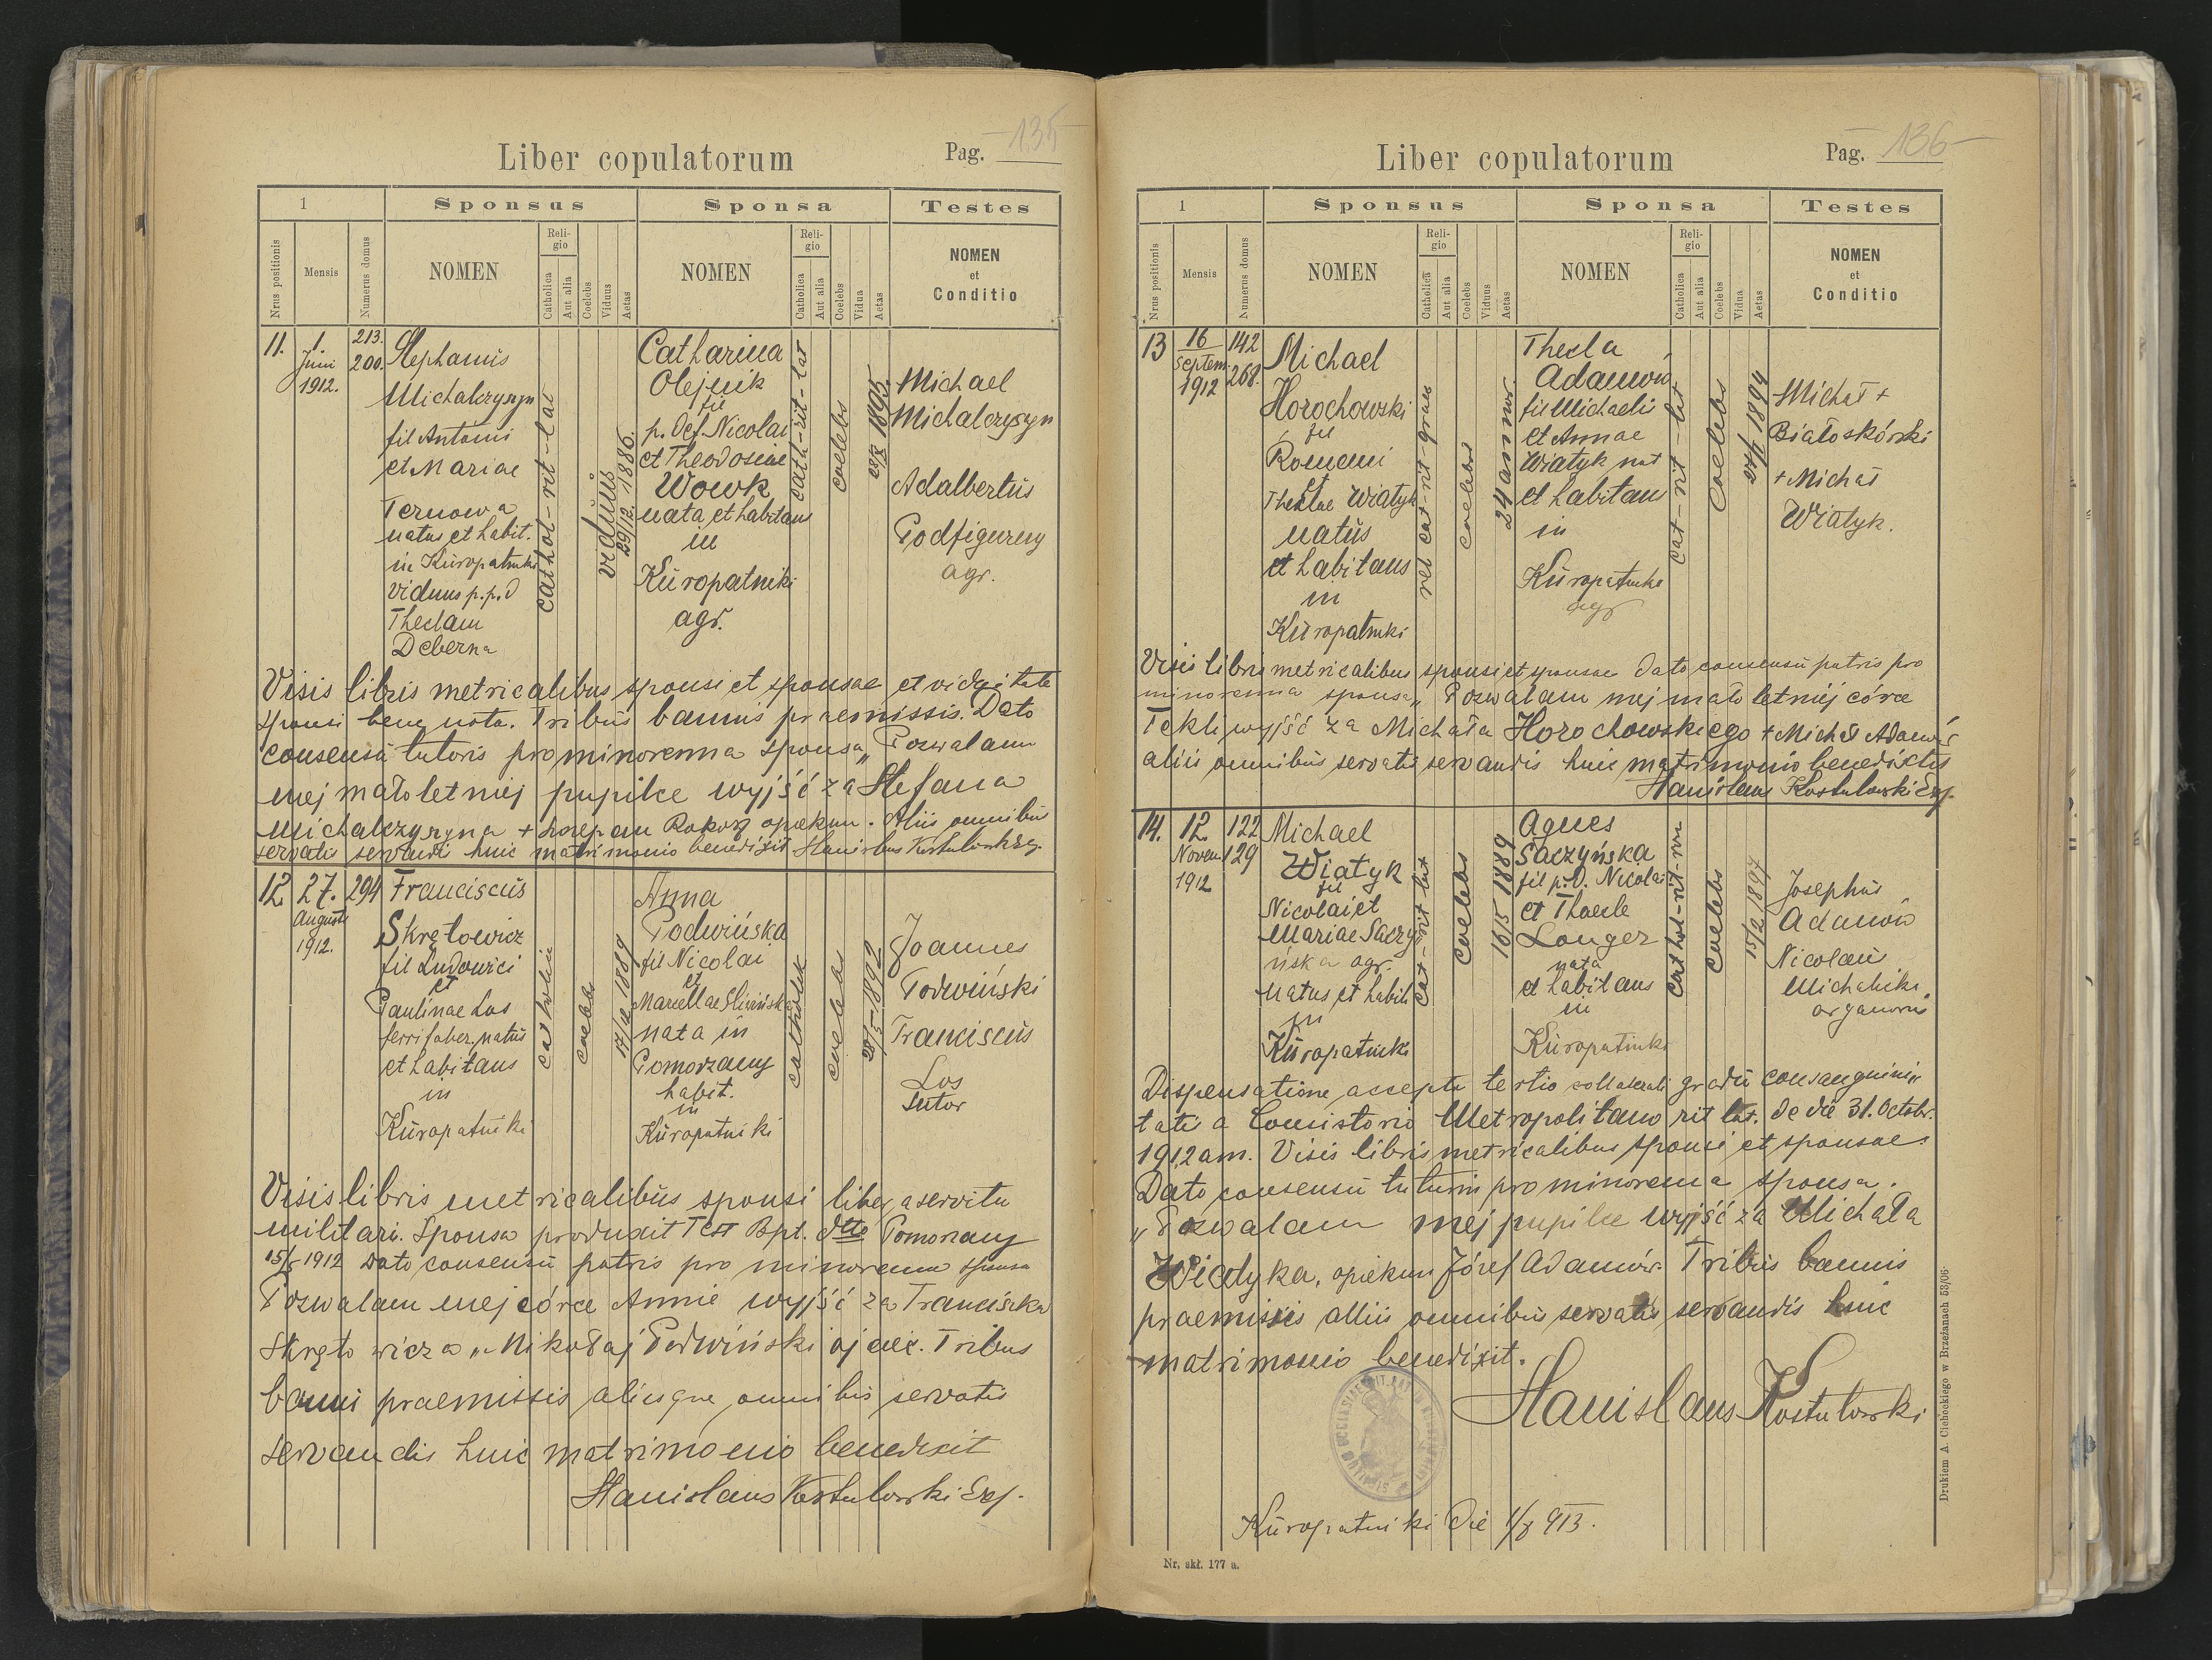 Liber copulatorum
Pag. 135
1
Sponsus
Sponsa
Testes
Nrus positionis
Mensis
Numerus domus
NOMEN
Religio
Catholica
Aut alia
Coelebs
Viduus
Aetas
NOMEN
Religio
Catholica
Aut alia
Coelebs
Vidua
Aetas
NOMEN
et
Conditio
11.
1.
Juni
1912.
213.
200.
Stephanus
Michalczyszyn
fil Antoni
et Mariae
Ternowa
natus et habit.
in Kuropatniki
viduus p.p.d
Theclam
Deberna
cathol-rit-lat
viduus
29/12. 1886.
Catharina
Olejnik
fil
p. Def. Nicolai
et Theodosiae
Wowk
nata et habitans
in
Kuropatniki
agr.
cath-rit-lat
coelebs
1895
Michael
Michalczyszyn
Adalbertus
Podfigurny
agr.
Visis libris metricalibus sponsi et sponsae et viduitate
sponsi bene nota. Tribus bannis praemissis. Dato
consensu tutoris pro minorenna sponsa „Pozwalam
mej małoletniej pupilce wyjść za Stefana
Michalczyszyna + Szczepan Rokosz opiekun. Aliis omnibus
servatis servandis huic matrimonio benedixit Stanislaus Kostulowski Exp.
12
27.
Augusti
1912.
294
Franciscus
Skrętowicz
fil Ludowici
et
Paulinae Los
ferrifaber. natus
et habitans
in
Kuropatniki
catholic
coelebs
17/12 1889
Anna
Podwińska
fil Nicolai
et
Marcellae Sliwińska
nata in
Pomorzany
habit.
in
Kuropatniki
catholik
coelebs
28/5-1892
Joannes
Podwiński
Franciscus
Los
Sutor
Visis libris metricalibus sponsi liber a servitu
militari. Sponsa produxit Test Bpt. dtto Pomorzany
15/5 1912 Dato consensu patris pro minorenna sponsa
Pozwalam mej córce Annie wyjść za Franciszka
Skrętowicza „Mikołaj Podwiński ojciec. Tribus
banni praemissis aliisque omnibus servatis
servandis huic matrimonio benedixit
Stanislaus Kostulowski Exp.
Liber copulatorum
Pag. 136
1
Sponsus
Sponsa
Testes
Nrus positionis
Mensis
Numerus domus
NOMEN
Religio
Catholica
Aut alia
Coelebs
Viduus
Aetas
NOMEN
Religio
Catholica
Aut alia
Coelebs
Vidua
Aetas
NOMEN
et
Conditio
13
16
Septem.
1912
142
268.
Michael
Horochowski
fil
Romani
et
Theclae Wiatyk
natus
et habitans
in
Kuropatniki
rel cat-rit-graec
coelebs
24 annor.
Thecla
Adamów
fil Michaelis
et Annae
Wiatyk nat
et habitans
in
Kuropatniki
agr
cat-rit-lat
coelebs
1894
Michał +
Białoskórski
+ Michał
Wiatyk.
Visis libris metricalibus sponsi et sponsae Dato consensu patris pro
minorenna sponsa „Pozwalam mej małoletniej córce
Tekli wyjść za Michała Horochowskiego + Michał Adamów
aliis omnibus servatis servandis huic matrimonio benedictus
Stanislaus Kostulowski Exp.
14.
12
Novem
1912
122
129
Michael
Wiatyk
fil
Nicolai et
Mariae Saczy
ńska agr.
natus et habit
in
Kuropatniki
cat-rit-lat
coelebs
16/5 1889
Agnes
Saczyńska
fil p.D. Nicolai
et Thecle
Longer
nata
et habitans
in
Kuropatniki
cathol-rit-rom
coelebs
15/2 1897
Josephus
Adamów
Nicolaus
Michaliki
organarius
Dispensatione accepta tertio collaterali gradu consanguini„
tatis a Consistorio Metropolitano rit lat. de die 31. Octobr.
1912 am. Visis libris metricalibus sponsi et sponsae.
Dato consensu tutoris pro minorenna sponsa.
„Pozwalam mej pupilce wyjść za Michała
Wiatyka, opiekun Józef Adamów. Tribus bannis
praemissis aliis omnibus servatis servandis huic
matrimonio benedixit.
Stanislaus Kostulowski
Kuropatniki die 1/8 913.
Nr. skł. 177 a.
Drukiem A. Ciehockiego w Brzeżanach 53/06.